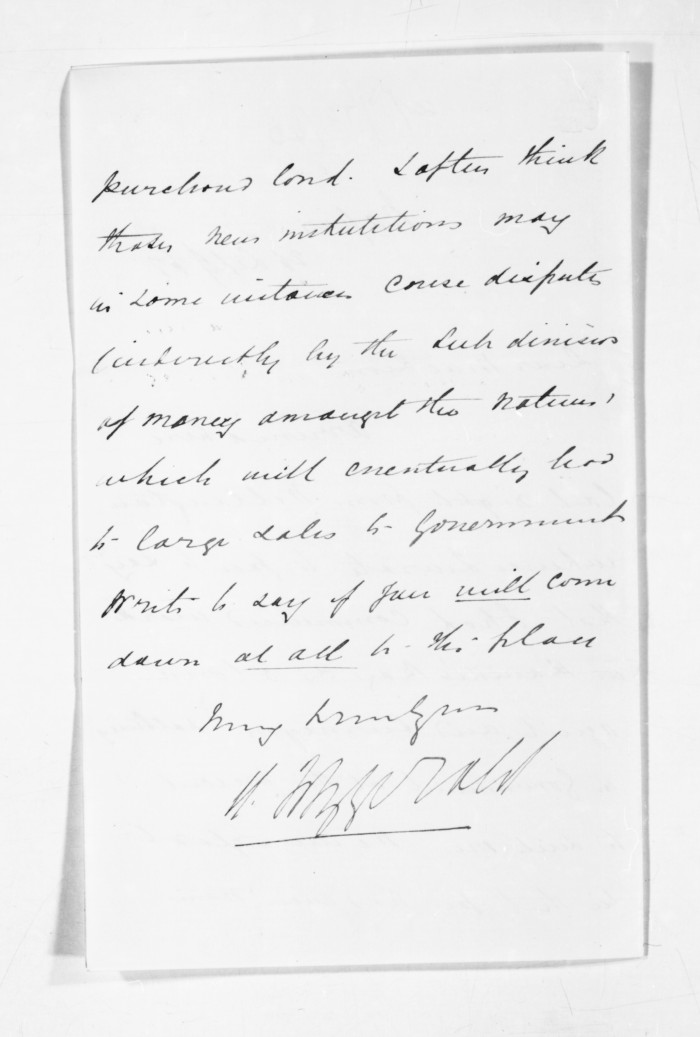 purchased land. I often think
these new institutions may
in some instances cause disputes
(indirectly by the sub division
of money amongst the natives'
which will eventually lead
to large sales to Government
Write to say if you will come
down at all to this place
Very truly yours
Fitzgerald